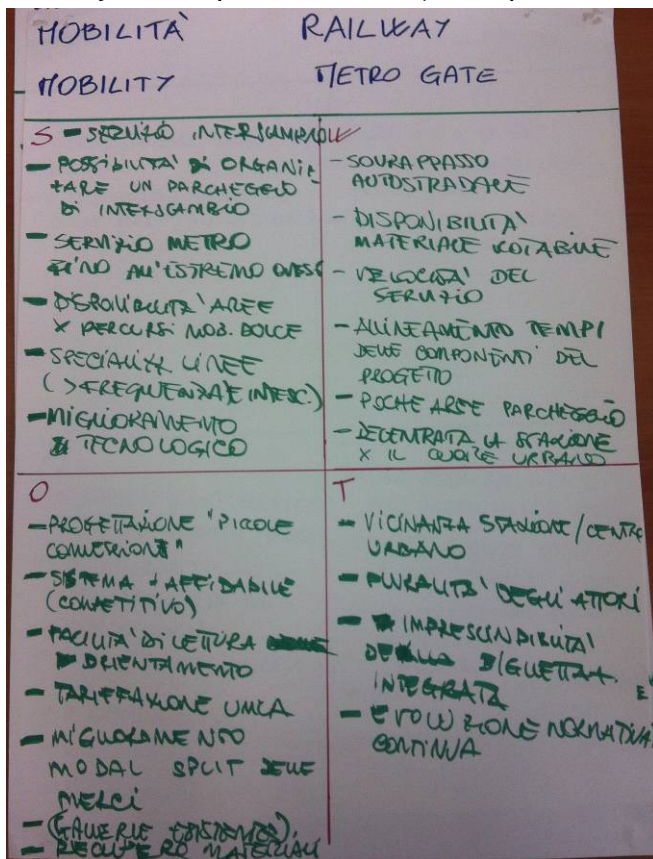 MOBILITÀ RAILWAY
MOBILITY METRO GATE
S - SERVIZIO
- POSSIBILITA' DI ORGANIZ-
ZARE UN PARCHEGGIO
DI INTERSCAMBIO
- SERVIZIO METRO
FINO ALL'ESTREMO OVEST
- DISPONIBILITA' AREE
X PERCORSI MOB. DOLCE
- SPECIALIZZ. LINEE
(> FREQUENZA E INTESC.)
- MIGLIORAMENTO
TECNOLOGICO
W
- SOVRAPPASSO
AUTOSTRADALE
- DISPONIBILITA'
MATERIALE ROTABILE
- VELOCITA' DEL
SERVIZIO
- ALLINEAMENTO TEMPI
DELLE COMPONENTI DEL
PROGETTO
- POCHE AREE PARCHEGGIO
- DECENTRATA LA STAZIONE
X IL CUORE URBANO
O
- PROGETTAZIONE "PICCOLE
CONNESSIONI"
- SISTEMA + AFFIDABILE
(COMPETITIVO)
- FACILITA' DI LETTURA
ORIENTAMENTO
- TARIFFAZIONE UNICA
- MIGLIORAMENTO
MODAL SPLIT DELLE
MERCI
- (GALLERIE ESISTENTI)
- RECUPERO MATERIALI
T
- VICINANZA STAZIONE/CENTRO
URBANO
- PLURALITA' DEGLI ATTORI
- IMPRESCINDIBILITA'
BIGLIETTAZ.
INTEGRATA
- EVOLUZIONE NORMATIVA
CONTINUA